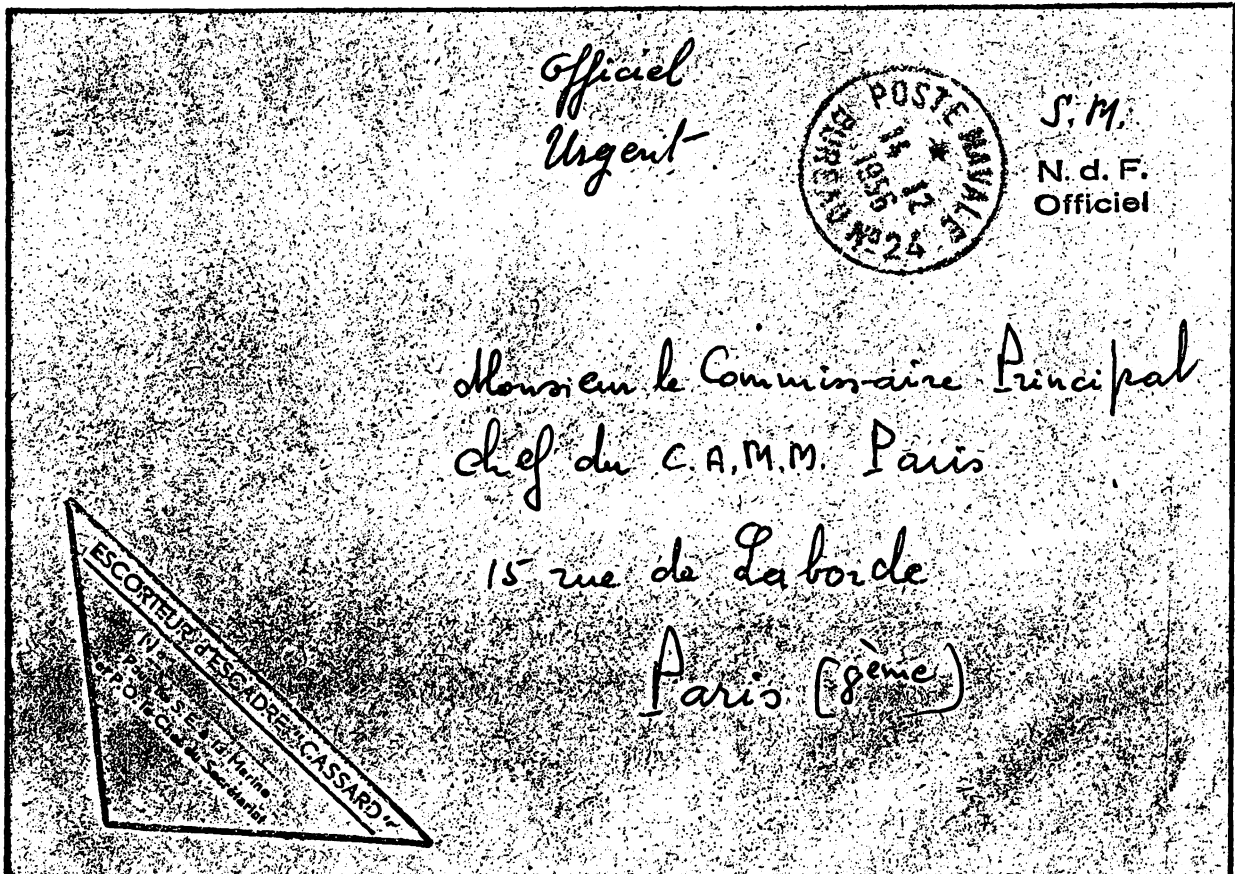 Officiel
Urgent
POSTE NAVALE
BUREAU N° 24
14 12
1956
S.M.
N. d. F.
Officiel
Monsieur le Commissaire Principal
chef du C.A.M.M. Paris
15 rue de Laborde
Paris (8ème)
ESCORTEUR d'ESCADRE "CASSARD"
N°
S.E. à la Marine
et P.O. le Chef du Secrétariat